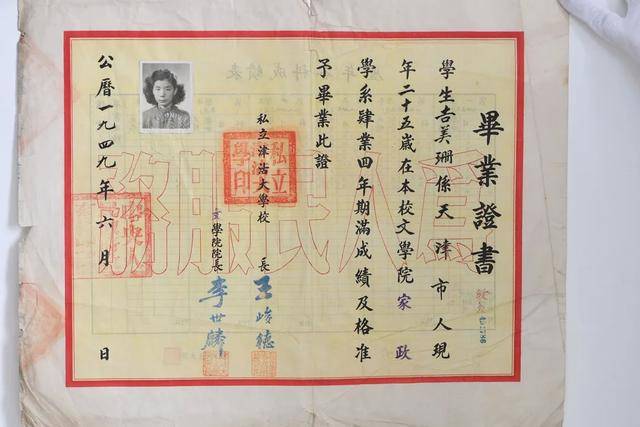 畢業證書
學生吉美珊係天津市人現
年二十五歲在本校文學院家政
學系肄業四年期滿成績及格准
予畢業此證
私立津沽大學校長王峻德
文學院院長李世麟
公曆一九四九年六月日
為人民服務